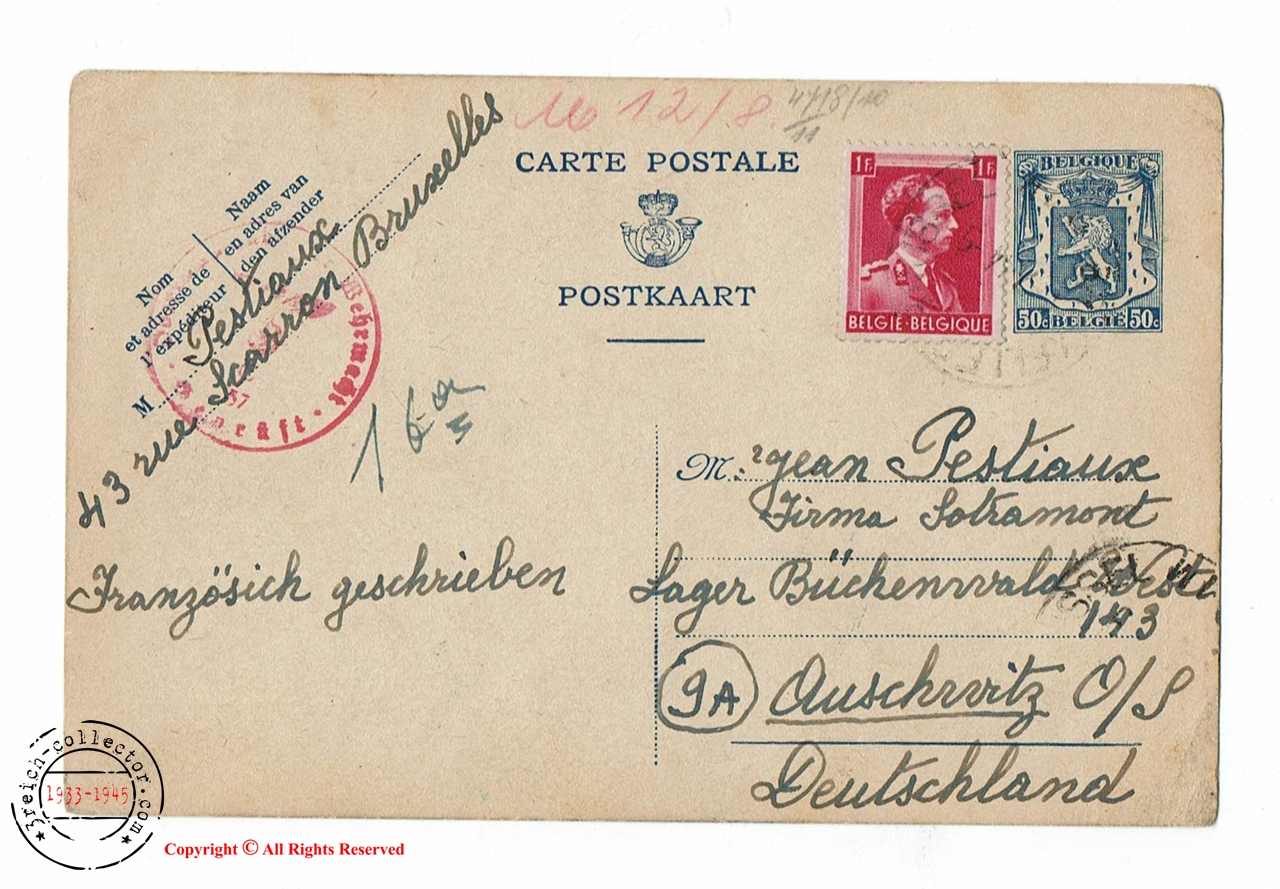 12/8.
CARTE POSTALE
POSTKAART
Nom et adresse de l'expéditeur
Naam en adres van den afzender
M
Pestiaux
43 rue Scarron Bruxelles
Wehrmacht
Geprüft
1F. 1F.
BELGIE-BELGIQUE
BELGIQUE
50c BELGIË 50c
M.: Jean Pestiaux
Firma Sotramont
Lager Büchenwald
143
9A Auschwitz O/S
Deutschland
Französich geschrieben
3reich-collector.com
1933-1945
Copyright © All Rights Reserved